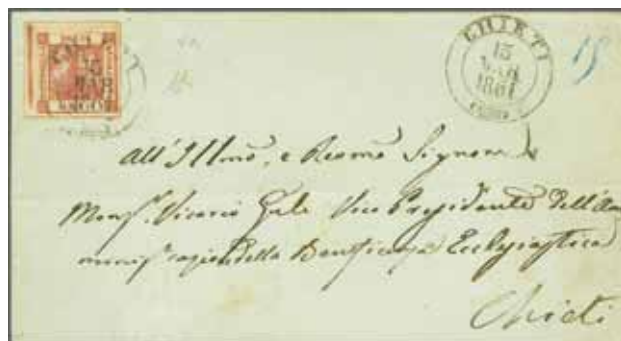 CHIETI
15
MAR
CHIETI
15
MAR
1861
15
All'Illmo, e Revmo Signore
Monsr. Vicario Gale Vice Presidente dell'Am
della Beneficenza Ecclesiastica
Chieti